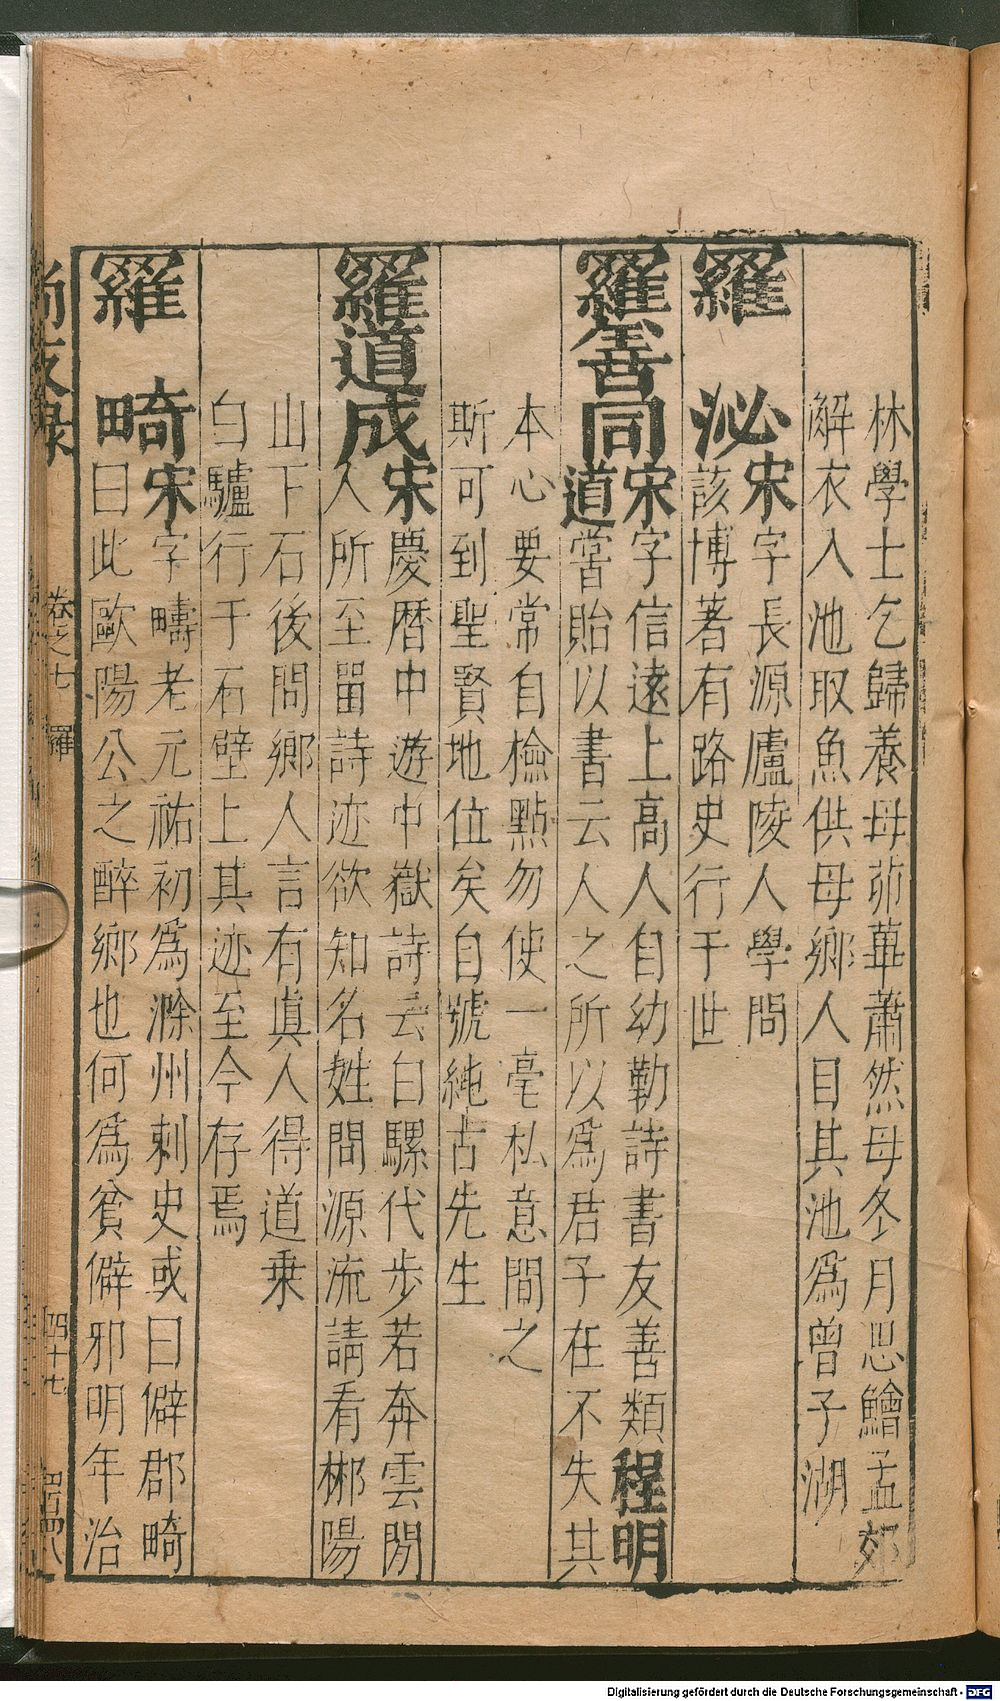 林學士乞歸養母茆華蕭然母冬月思鱠孟郊
解衣入池取魚供母鄉人目其池爲曾子湖
羅 泌宋字長源廬陵人學問
該博著有路史行于世
羅善同宋字信遠上高人自幼勤詩書友善類程明
道嘗貽以書云人之所以爲君子在不失其
本心要常自檢點勿使一毫私意間之
斯可到聖賢地位矣自號純古先生
羅道成宋慶曆中遊中嶽詩云白騾代步若奔雲閒
人所至留詩迹欲知名姓問源流請看郴陽
山下石後問鄉人言有眞人得道乗
白驢行于石壁上其迹至今存焉
羅 畸宋字疇老元祐初爲滁州刺史或曰僻郡畸
曰此歐陽公之醉鄉也何爲貧僻邪明年治
尚友録 卷之七 羅 四十七
Digitalisierung gefördert durch die Deutsche Forschungsgemeinschaft - DFG